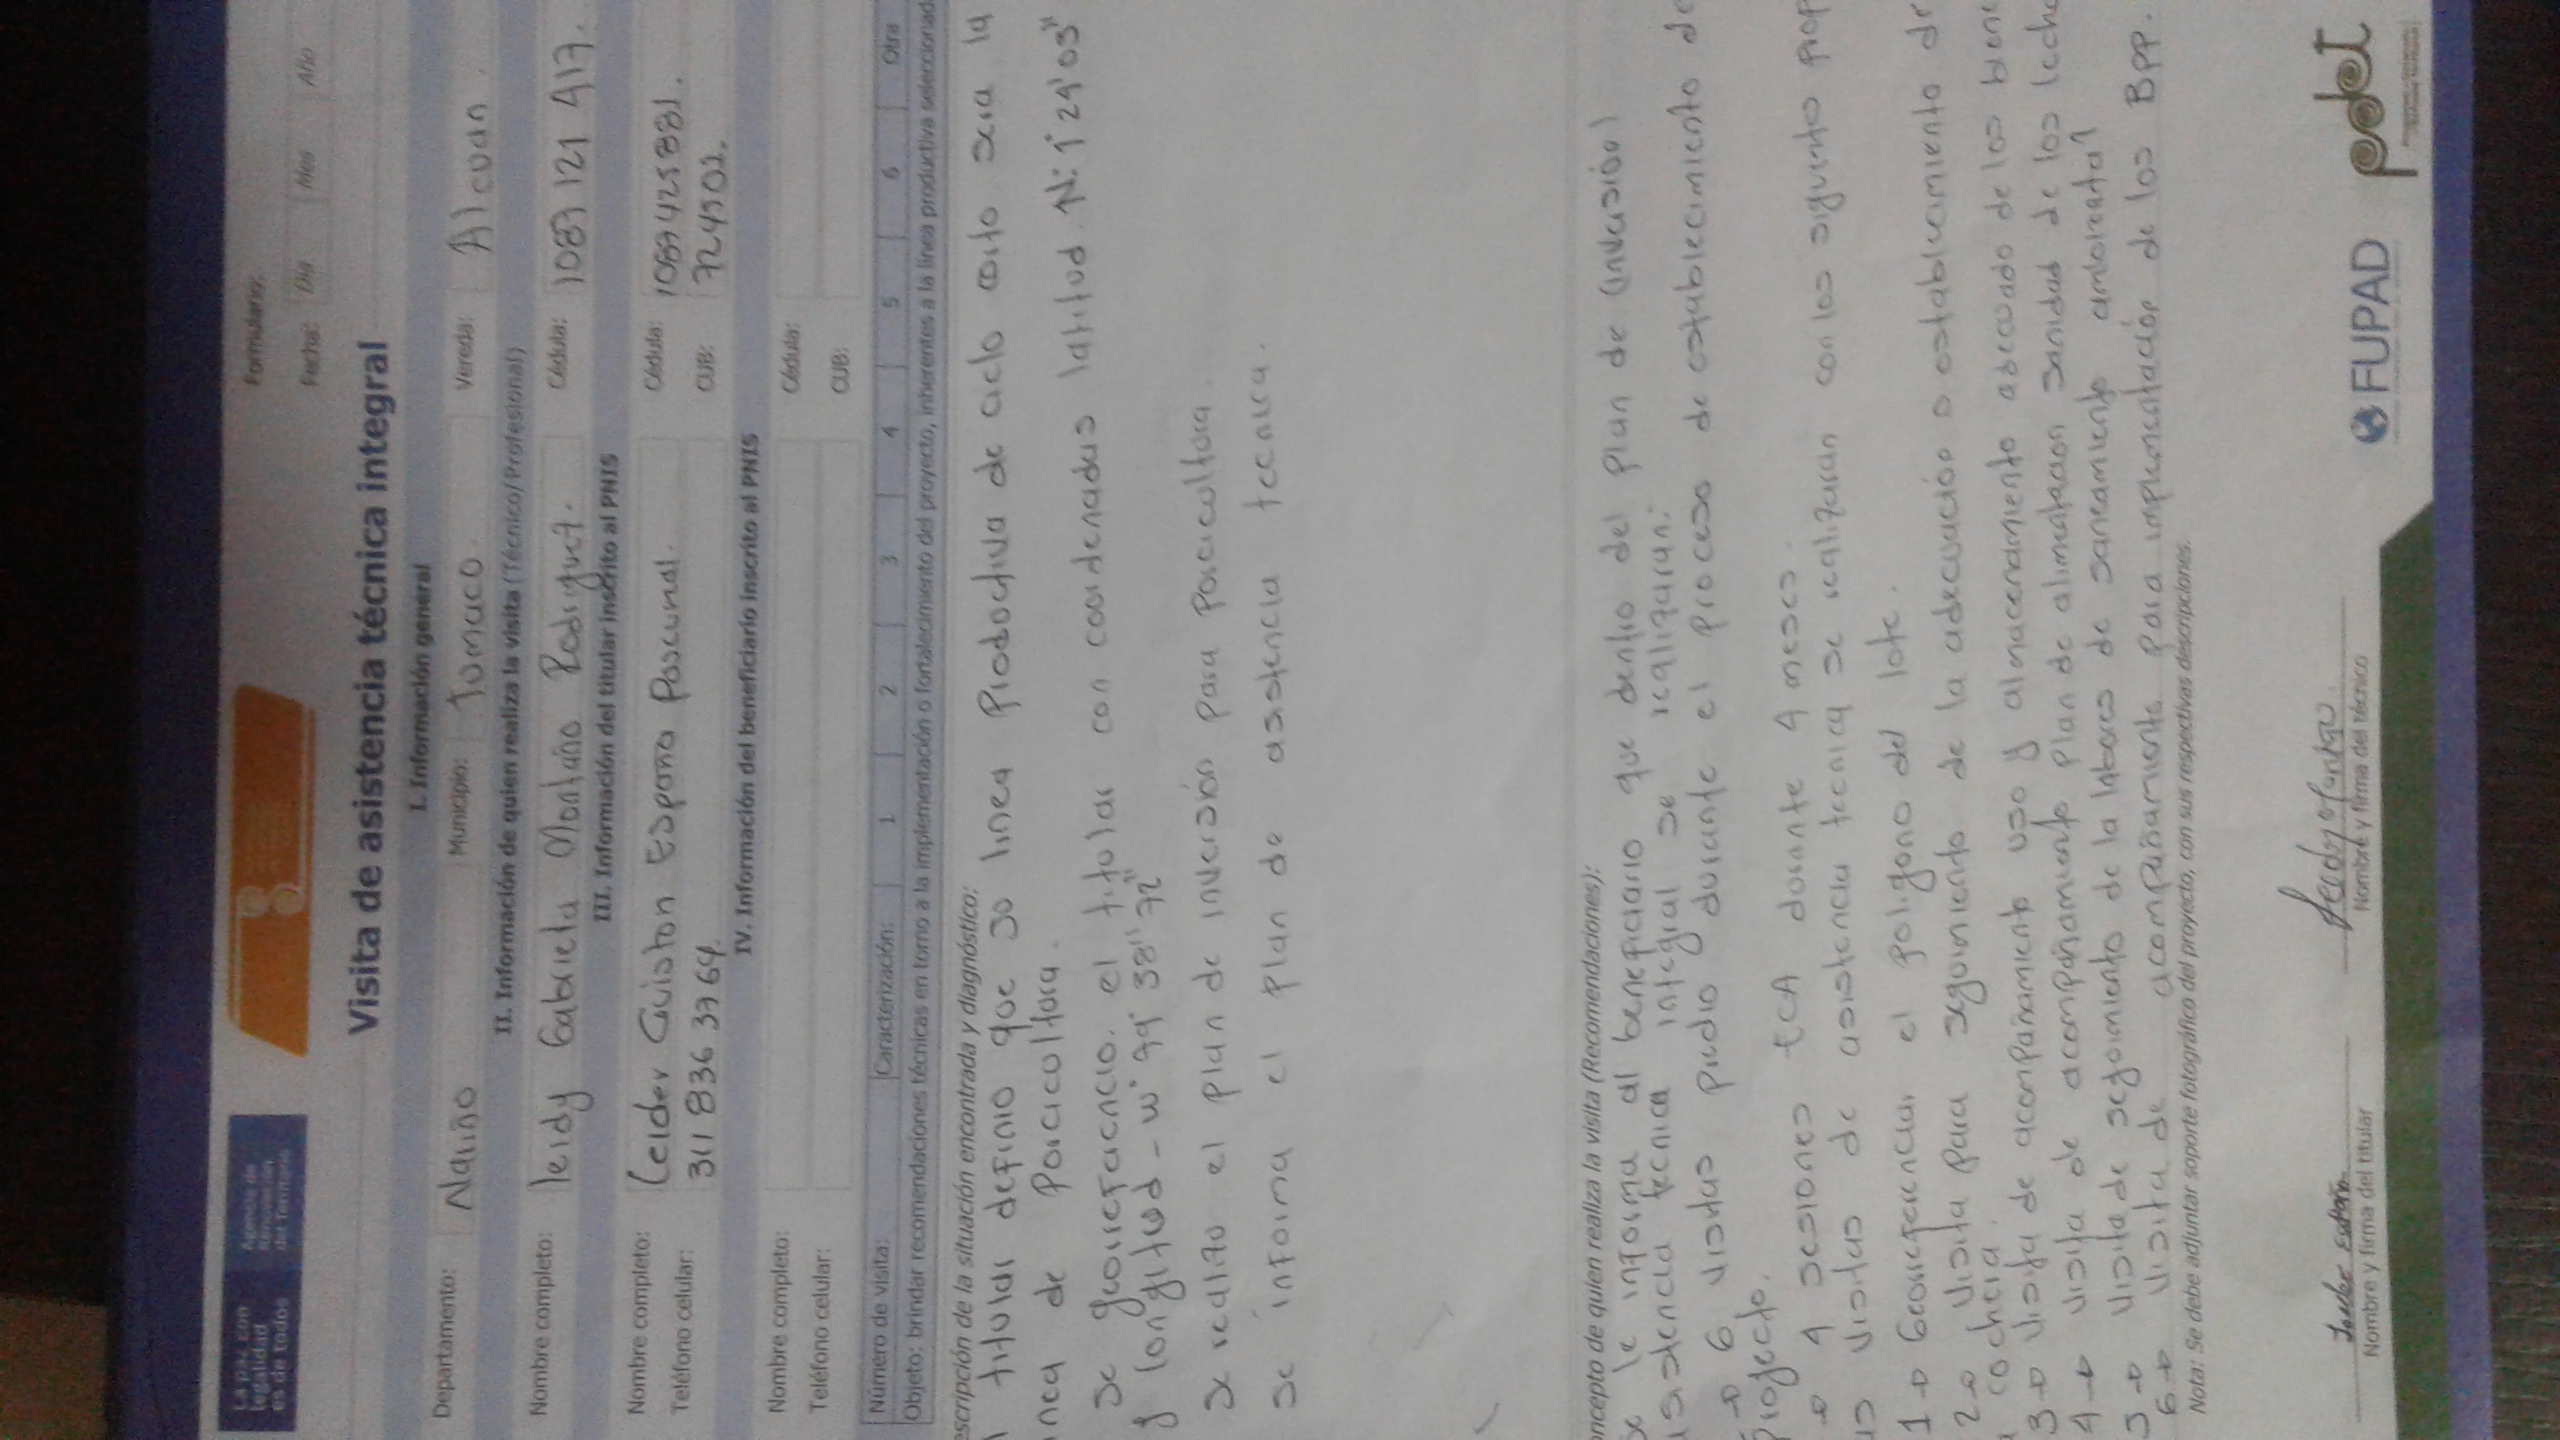 La paz con
legalidad
es de todos
Agencia de
Renovación
del Territorio
Formulario:
Fecha: Día Mes Año
Visita de asistencia técnica integral
I. Información general
Departamento: Nariño Municipio: Tumaco. Vereda: Alcuan.
II. Información de quien realiza la visita (Técnico/ Profesional)
Nombre completo: leidy Gabriela Montaño Rodriguez. Cédula: 1087 121 417.
III. Información del titular inscrito al PNIS
Nombre completo: Leider Guiston España Pascunal. Cédula: 10894258 81.
Teléfono celular: 311 836 3764. CUB: 7245502.
IV. Información del beneficiario inscrito al PNIS
Nombre completo: Cédula:
Teléfono celular: CUB:
Número de visita: Caracterización: 1 2 3 4 5 6 Otra
Objeto: brindar recomendaciones técnicas en torno a la implementación o fortalecimiento del proyecto, inherentes a la línea productiva seleccionad
escripción de la situación encontrada y diagnóstico:
titular definio que su linea Productiva de ciclo corto sera la
inea de Porcicultura.
se georefacncio. el titular con coordenadas latitud. N: 1° 29' 03"
y longitud - w° 99' 38" 72"
se realizo el plan de inverción para Porcicoltora.
se informa el plan de asistencia tecnica.
oncepto de quien realiza la visita (Recomendaciones):
se le informa al beneficiario que dentro del plan de (inversión)
asistencia tecnica integral se realizaran:
6 visitas predio durante el proceso de establecimiento de
Projecto.
4 sesiones ECA durante 4 meses.
as visitas de asistencia tecnica se realizaran con los siguento prop
1 Georeferenciar el poligono del lote.
2 Visita para seguimiento de la adecuación o establecimiento de
a cochera.
3 Visita de acompañamiento uso y almacenamiento adecuado de los biene
4 Visita de acompañamiento plan de alimentacion sanidad de los lecho
5 Visita de segoimiento de la labores de saneamiento ambiental
6 Visita de acompañamiento para implementación de los BPP.
Nota: Se debe adjuntar soporte fotográfico del proyecto, con sus respectivas descripciones.
Leider España
Nombre y firma del titular
Nombre y firma del técnico
FUPAD
pdet